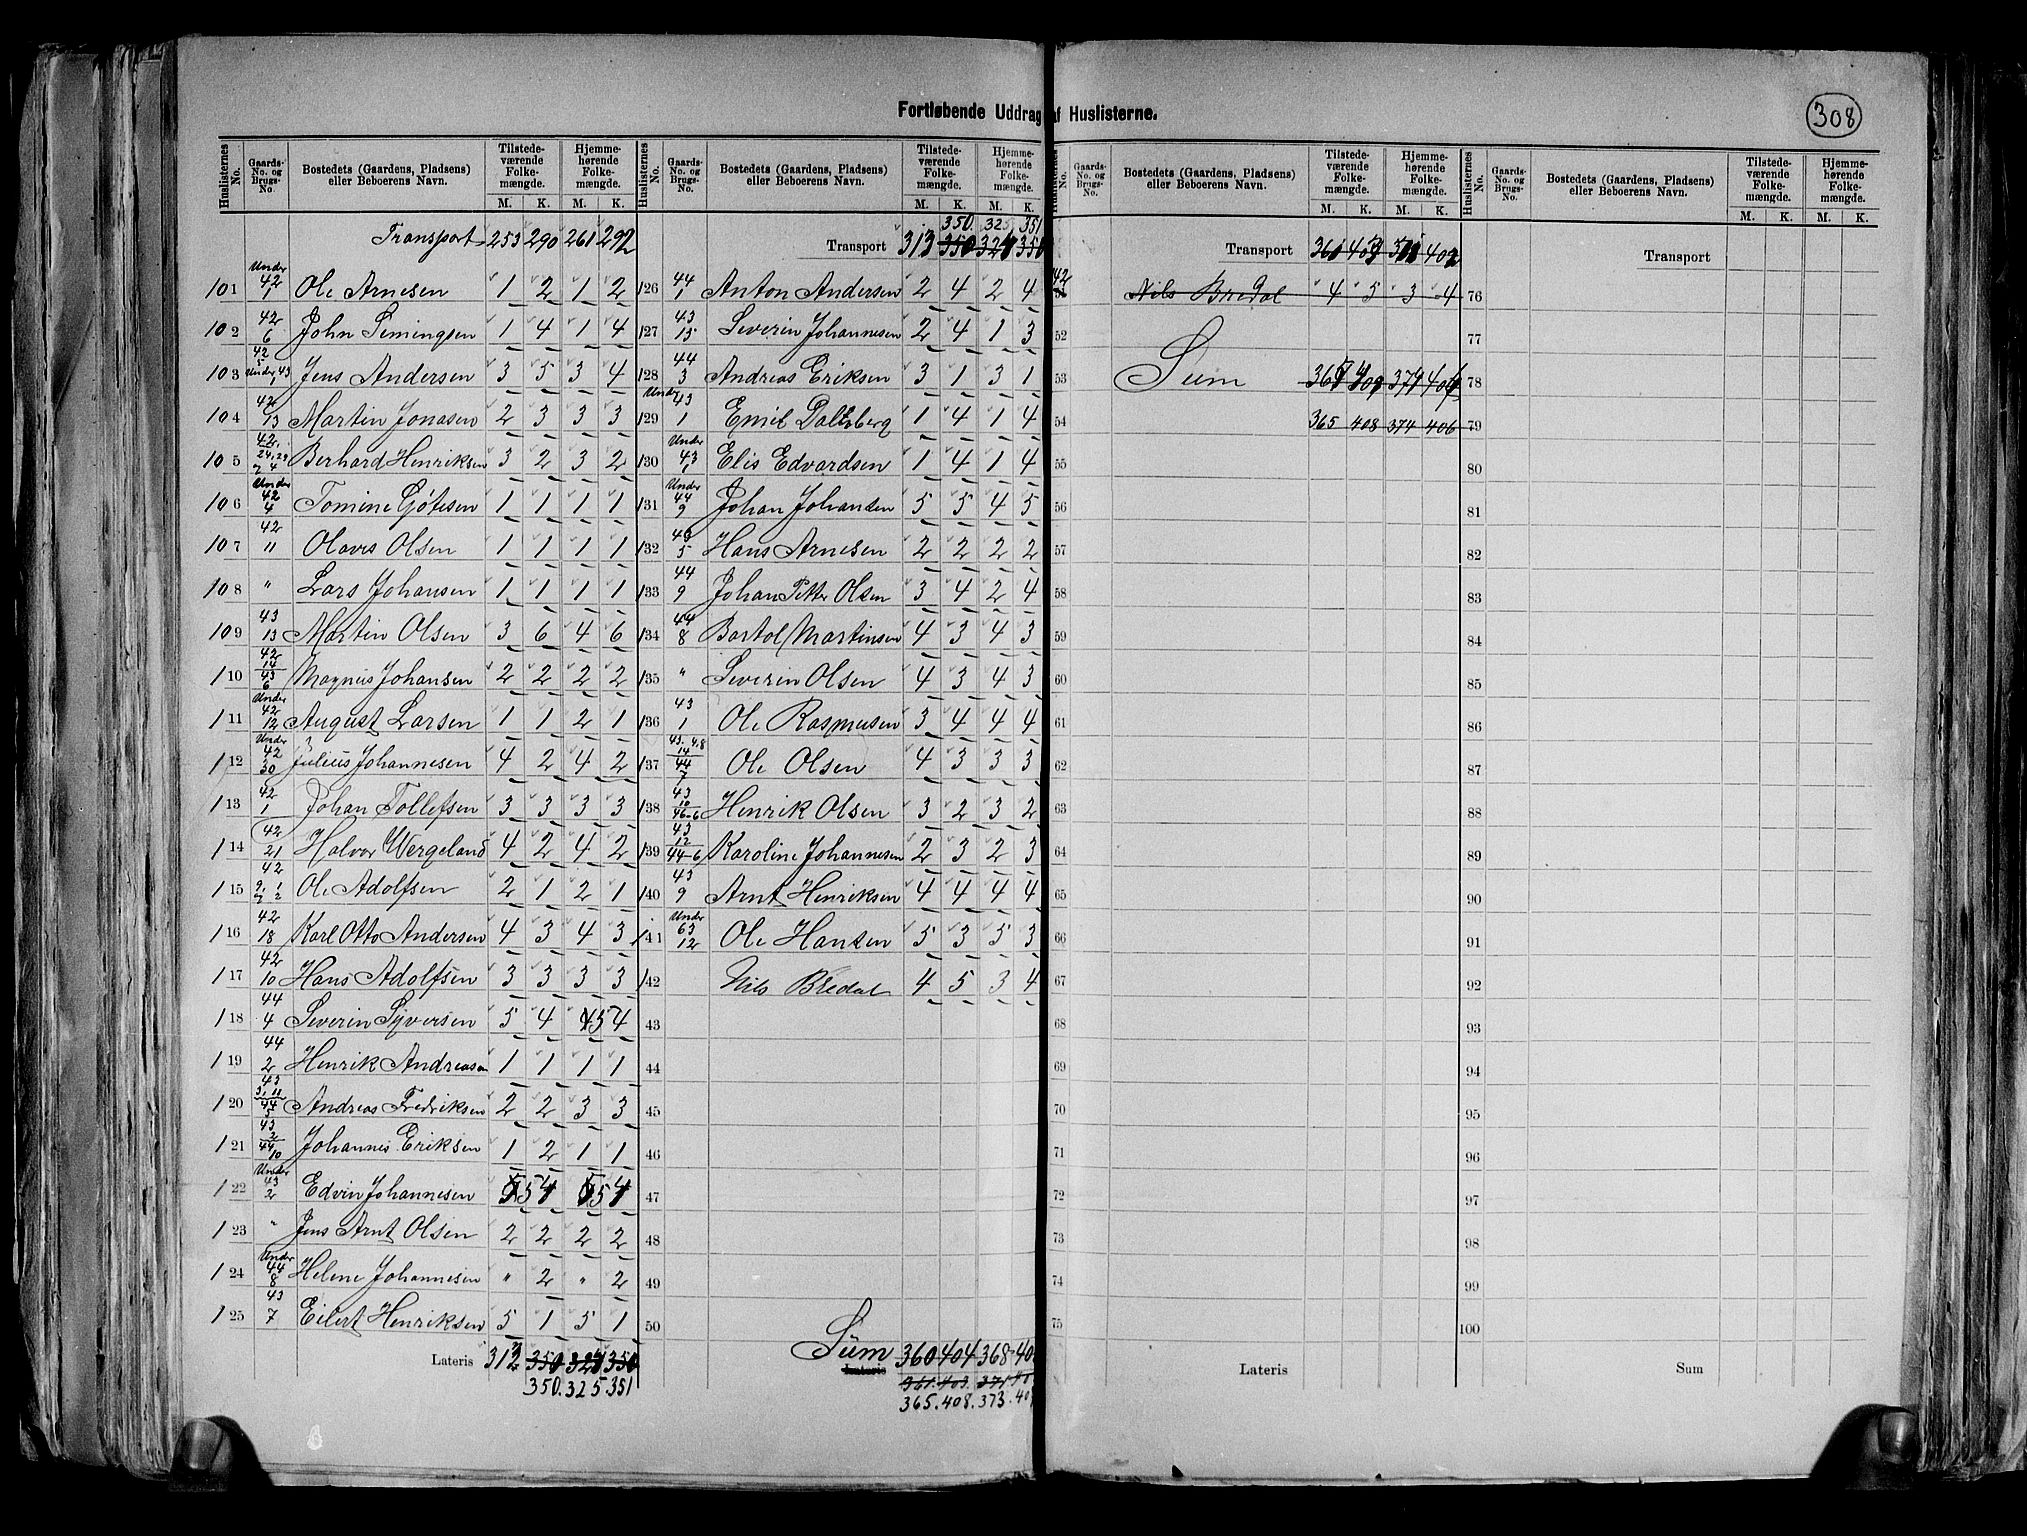 Fortløbende Uddrag af Huslisterne.
308
Huslisternes No. | Gaards-No. og Brugs-No. | Bostedets (Gaardens, Pladsens) eller Beboerens Navn. | Tilstedeværende Folkemængde. M. K. | Hjemmehørende Folkemængde. M. K.
Transport 253 290 261 292
101 Under 42 1 Ole Arnesen 1 2 1 2
102 42 6 John Simingsen 1 4 1 4
103 42 5 Under 43 1 Jens Andersen 3 5 3 4
104 42 13 Martin Jonasen 2 3 3 3
105 42. 24, 29 7 4 Berhard Henriksen 3 2 3 2
106 Under 42 4 Tomine Gøtesen 1 1 1 1
107 42 11 Olaves Olsen 1 1 1 1
108 " Lars Johansen 1 1 1 1
109 43 13 Martin Olsen 3 6 4 6
110 42 14 43 6 Magnus Johansen 2 2 2 2
111 Under 42 12 August Larsen 1 1 2 1
112 Under 42 30 Julius Johannesen 4 2 4 2
113 42 1 Johan Tollefsen 3 3 3 3
114 42 21 Halvor Wergeland 4 2 4 2
115 42 Ole Adolfsen 2 1 2 1
116 42 18 Karl Otto Andersen 4 3 4 3
117 42 10 Hans Adolfsen 3 3 3 3
118 44 4 Severin Syversen 5 4 5 4
119 44 2 Henrik Andreasen 1 1 1 1
120 43 3, 11 44 5 Andreas Fredriksen 2 2 3 3
121 43 2 44 10 Johannes Eriksen 1 2 1 1
122 Under 43 2 Edvin Johannesen 5 4 5 4
123 " Jens Arnt Olsen 2 2 2 2
124 Under 44 8 Helene Johannesen " 2 " 2
125 43 7 Eilert Henriksen 5 1 5 1
Lateris 313 350 350
350. 325 351
350. 325, 351
Transport 313 350 350
126 44 1 Anton Andersen 2 4 2 4
127 43 15 Severin Johannesen 2 4 1 3
128 44 3 Andreas Eriksen 3 1 3 1
129 Under 43 1 Emil Daltsberg 1 4 1 4
130 Under 43 1 Elis Edvardsen 1 4 1 4
131 Under 44 9 Johan Johansen 5 5 4 5
132 5 Hans Arnesen 2 2 2 2
133 44 9 Johan Petter Olsen 3 4 2 4
134 44 8 Bartol Martinsen 4 3 4 3
135 " Severin Olsen 4 3 4 3
136 43 1 Ole Rasmusen 3 4 4 4
137 43. 4,8 14 44 7 Ole Olsen 4 3 3 3
138 43 10 46-6 Henrik Olsen 3 2 3 2
139 43 12 44-6 Karoline Johannesen 2 3 2 3
140 43 9 Arnt Henriksen 4 4 4 4
141 Under 63 12 Ole Hansen 5 3 5 3
142 Nils Bredal 4 5 3 4
43
44
45
46
47
48
49
50
Sum Lateris 360 404 368
361. 403. 371
365. 408. 373.
Huslisternes No. | Gaards-No. og Brugs-No. | Bostedets (Gaardens, Pladsens) eller Beboerens Navn. | Tilstedeværende Folkemængde. M. K. | Hjemmehørende Folkemængde. M. K.
Transport 361 403 402
42 51 Nils Bredal 4 5 3 4
52
53 Sum
54 365 408 374 406
55
56
57
58
59
60
61
62
63
64
65
66
67
68
69
70
71
72
73
74
75
Lateris
Huslisternes No. | Gaards-No. og Brugs-No. | Bostedets (Gaardens, Pladsens) eller Beboerens Navn. | Tilstedeværende Folkemængde. M. K. | Hjemmehørende Folkemængde. M. K.
Transport
76
77
78
79
80
81
82
83
84
85
86
87
88
89
90
91
92
93
94
95
96
97
98
99
100
Sum